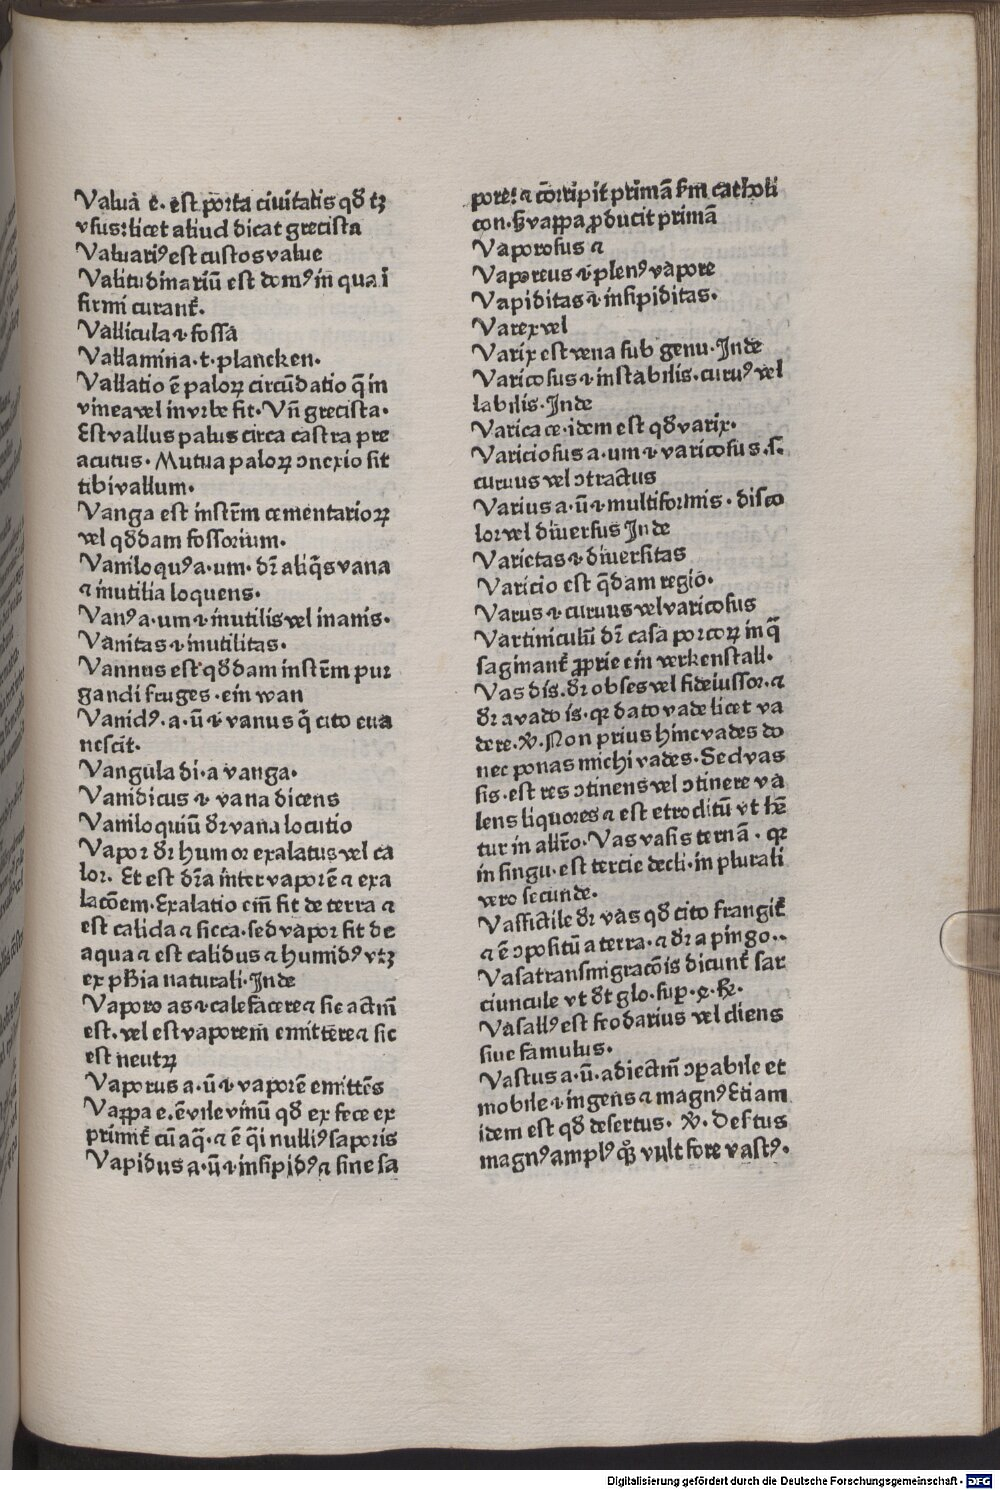 Valua e. est porta ciuitatis qď tꝫ
vsus: licet aliud dicat grecista
Valuariꝰ est custos value
Valitudinariū est domꝰ in qua ī
firmi curant᷑.
Vallicula .i. fossa
Vallamina .t. plancken.
Vallatio ē paloꝝ circūdatio q̄ in
vinea vel in vrbe fit. Vñ grecista.
Est vallus palus circa castra pre
acutus. Mutua paloꝝ ꝯnexio sit
tibi vallum.
Vanga est instr̄m cementarioꝝ
vel qďdam fossorium.
Vaniloquꝰ a. um. dr̄ aliq̄s vana
⁊ inutilia loquens.
Vanꝰ a. um .i. inutilis vel inanis.
Vanitas .i. inutilitas.
Vannus est qďdam instr̄m pur
gandi fruges. ein wan
Vanidꝰ. a. ū .i. vanus q̄ cito eua
nescit.
Vangula di. a vanga.
Vanidicus .i. vana dicens
Vaniloquiū dr̄ vana locutio
Vapor dr̄ humor exalatus vel ca
lor. Et est dr̄a inter vaporē ⁊ exa
lacōem. Exalatio em̄ fit de terra ⁊
est calida ⁊ sicca. sed vapor fit de
aqua ⁊ est calidus ⁊ humidꝰ vtꝫ
ex ph̄ia naturali. Inde
Vaporo as .i. calefacere ⁊ sic actm̄
est. vel est vaporem̄ emittere ⁊ sic
est neutꝝ
Vaporus a. ū .i. vaporē emittēs
Vappa e. ē vile vinū qď ex fece ex
primit᷑ cū aq̄. ⁊ ē q̄i nulliꝰ saporis
Vapidus a. ū .i. insipidꝰ ⁊ sine sa
pore! ⁊ cōrripit primā fm̄ catholi
con. sꝫ vappa ꝓducit primā
Vaporosus ⁊
Vaporeus .i. plenꝰ vapore
Vapiditas .i. insipiditas.
Varex vel
Varix est vena sub genu. Inde
Varicosus .i. instabilis. curuꝰ vel
labilis. Inde
Varica ce. idem est qď varix.
Variciosus a. um .i. varicosus. s.
curuus vel ꝯtractus
Varius a. ū .i. multiformis. disco
lor vel diuersus Inde
Varietas .i. diuersitas
Varicio est q̄dam regio.
Varus .i. curuus vel varicosus
Vartiniculū dr̄ casa porcoꝝ in q̄
saginant᷑ ꝓprie ein verkenstall.
Vas dis. dr̄ obses vel fideiussor. ⁊
dr̄ a vado is. qꝛ dato vade licet va
dere. ꝟ. Non prius hinc vades do
nec ponas michi vades. Sed vas
sis. est res ꝯtinens vel ꝯtinere va
lens liquores ⁊ est etroclitū vt hr̄e
tur in allr̄o. Vas vasis ternā. qꝛ
in singu. est tercie decli. in plurali
vero secunde.
Vasfictile dr̄ vas qď cito frangit᷑
⁊ ē ꝯpositū a terra. ⁊ dr̄ a pingo..
Vasatransmigracōis dicunt᷑ sar
ciuncule vt dt̄ glo. sup̄.
Vasallꝰ est feodarius vel cliens
siue famulus.
Vastus a. ū. adiectm̄ ꝯparabile et
mobile .i. ingens ⁊ magnꝰ Etiam
idem est qď desertus. ꝟ. Des̄tus
magnꝰ amplꝰ vult fore vastꝰ.
Digitalisierung gefördert durch die Deutsche Forschungsgemeinschaft · DFG